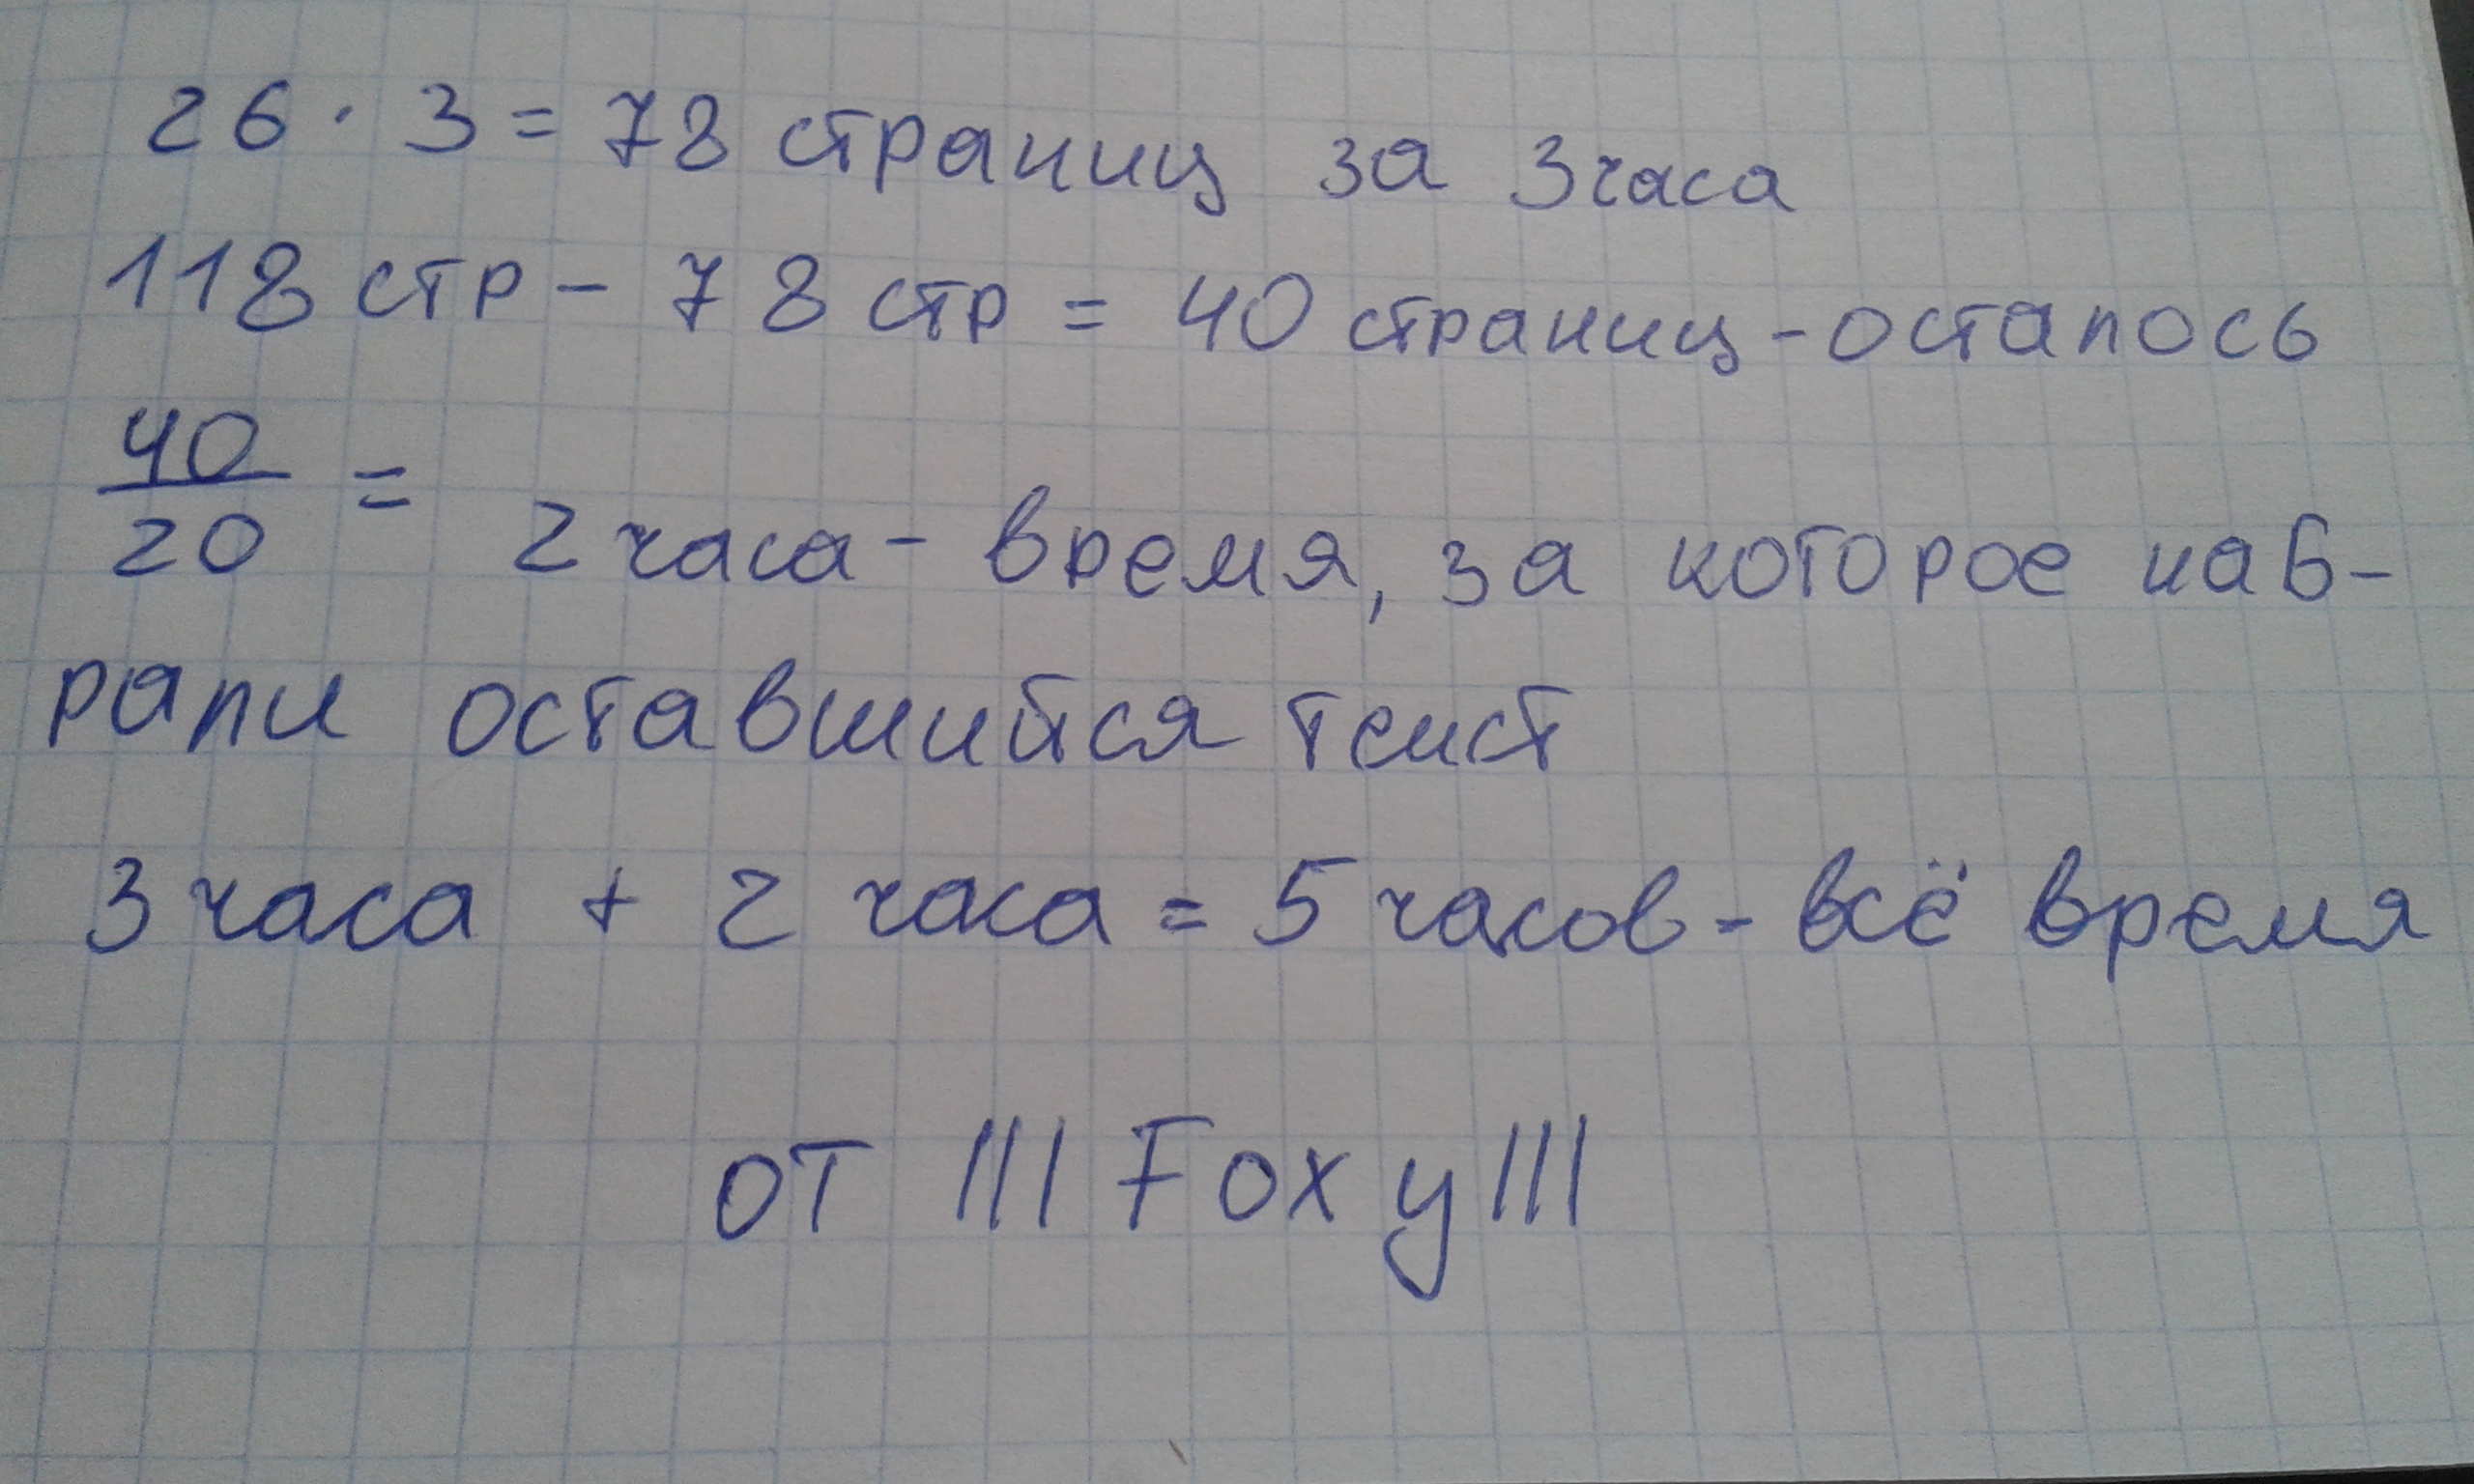 26 · 3 = 78 страниц за 3 часа
118 стр - 78 стр = 40 страниц - осталось
40/20 = 2 часа - время, за которое наб-
рали оставшийся текст
3 часа + 2 часа = 5 часов - всё время
от ||| Foxy |||